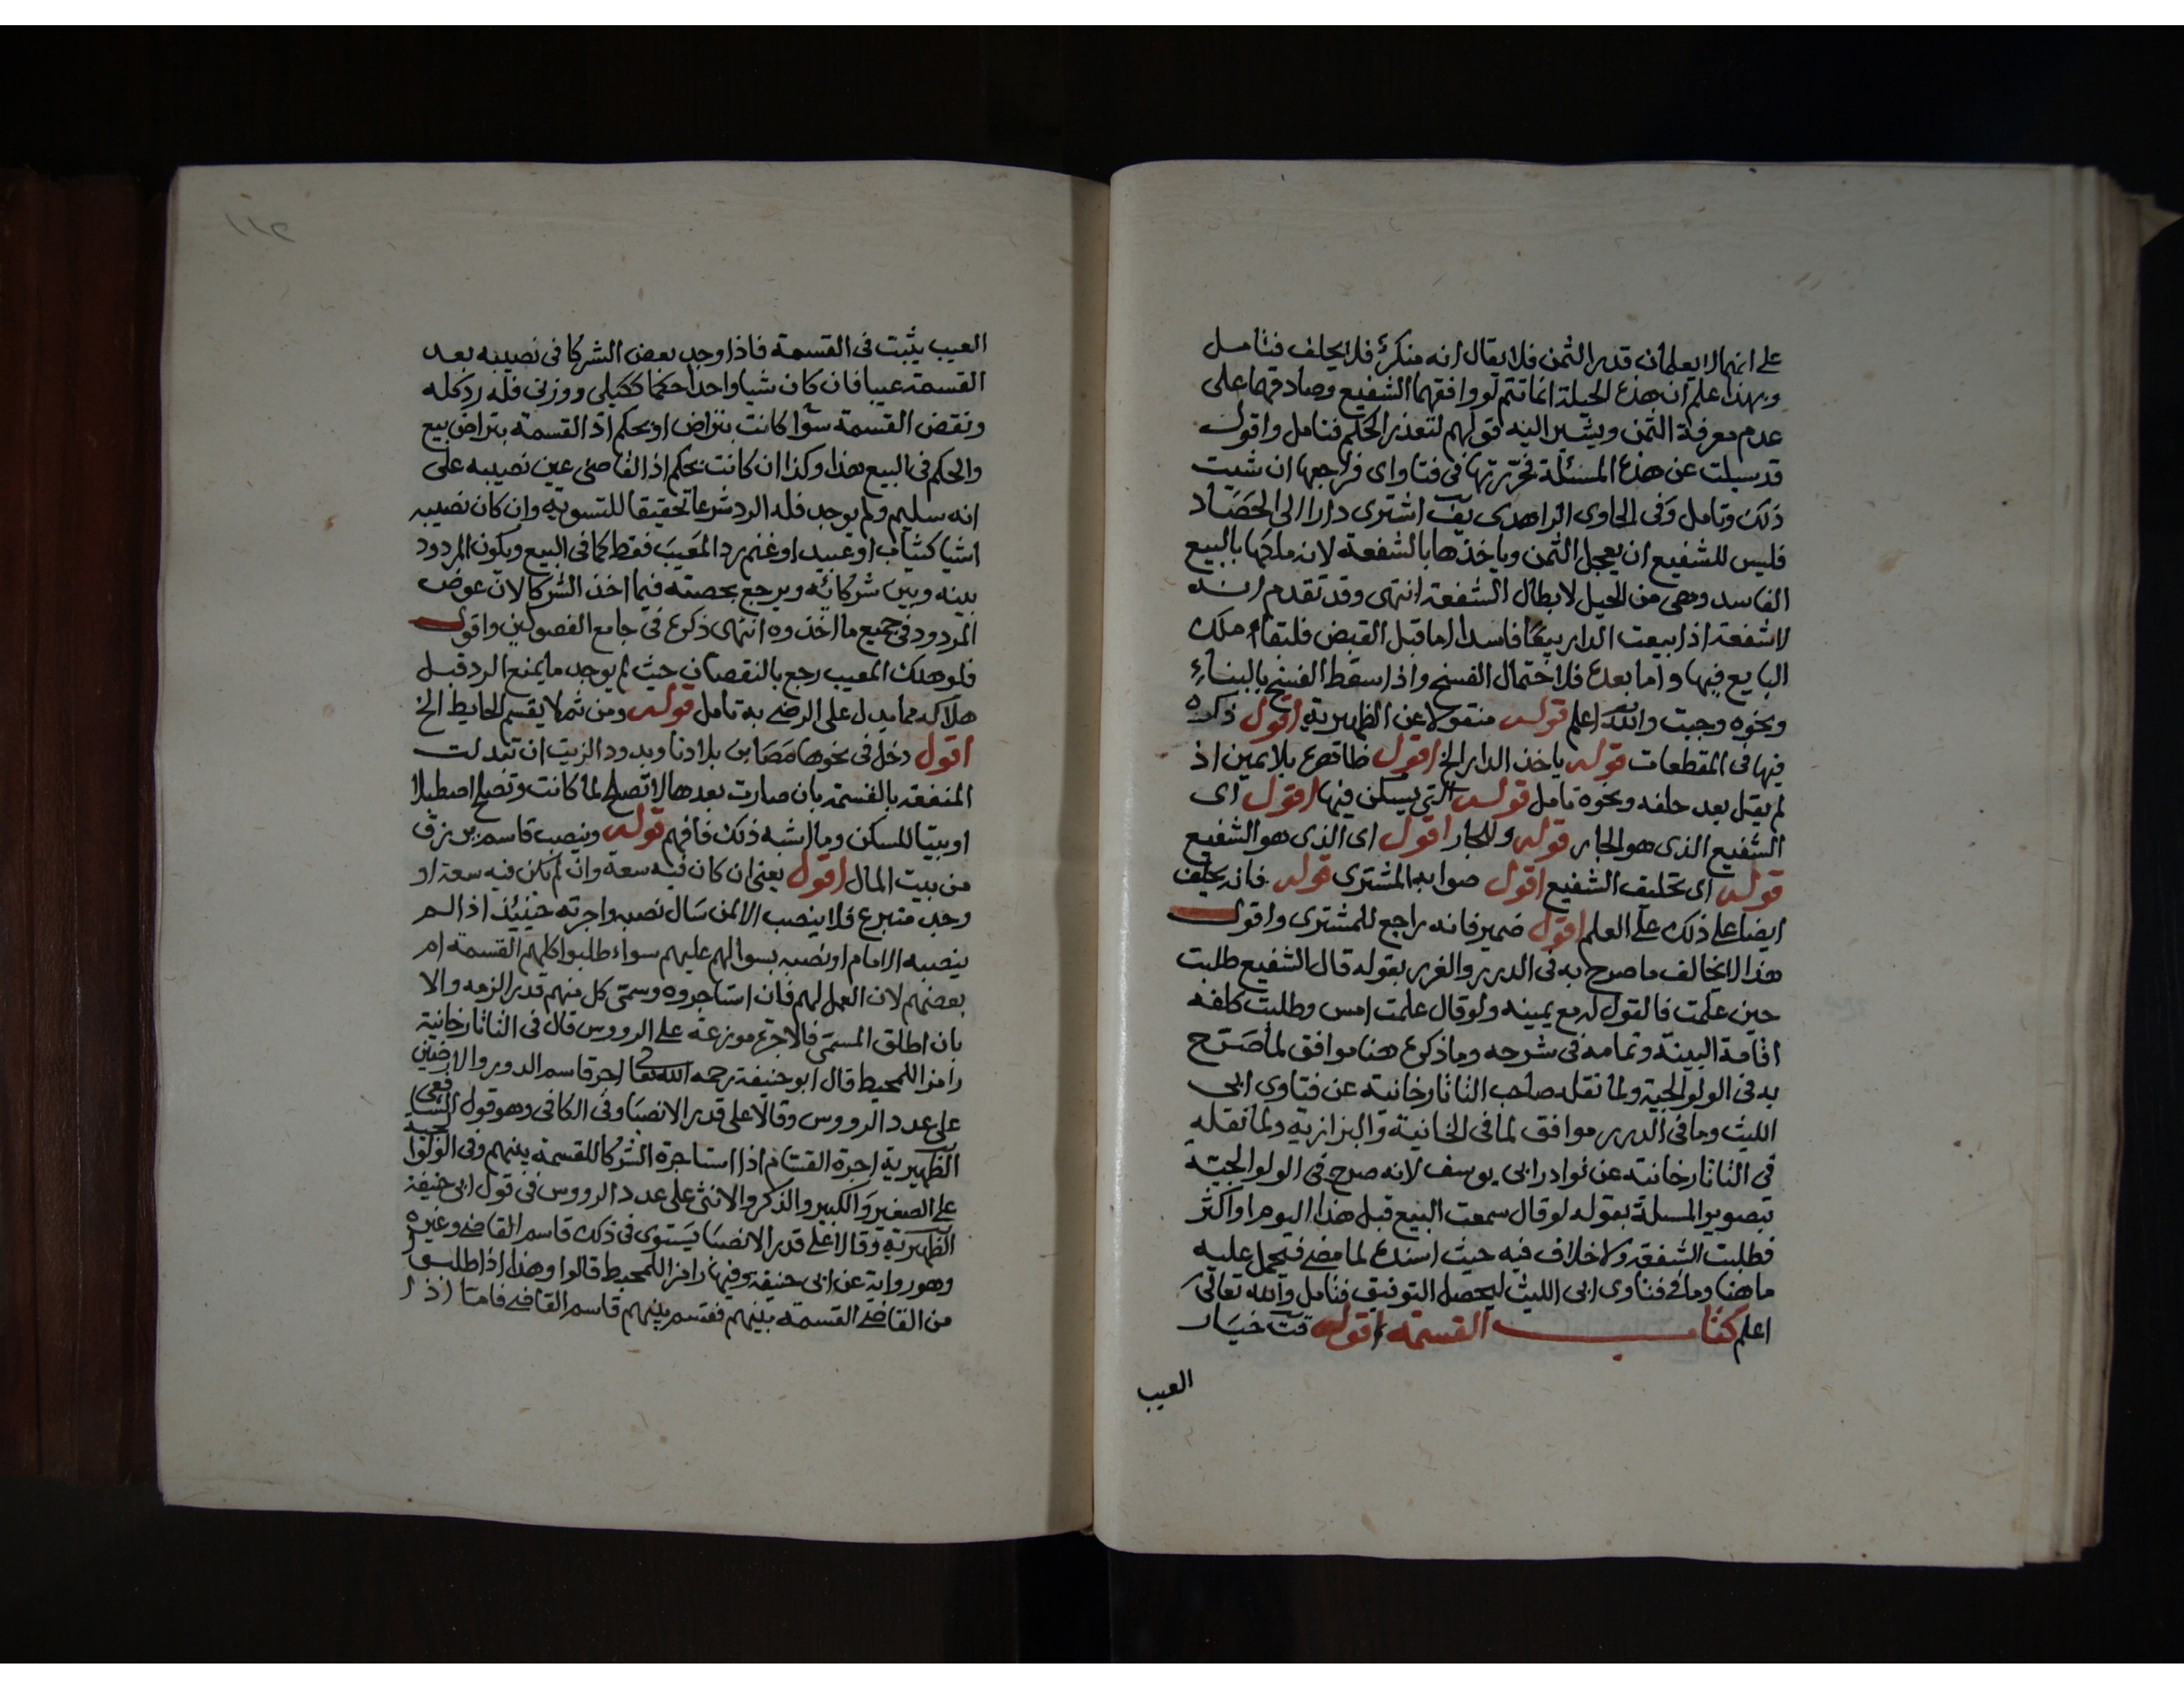 على انهما لا يعلمان قدر الثمن فلا يقال انه منكر فلا يحلف فتامل
وبهذا علم ان هذه الحيلة انما تتم لو وافقهما الشفيع وصادقهما على
عدم معرفة الثمن ويشير اليه قولهم لتعذر الحكم فتامل واقول
قد سيلت عن هذه المسئلة فحررتها في فتاواى فراجعها ان شيت
ذلك وتامل وفى الحاوى الزاهدى اشترى دارا الى الحصاد
فليس للشفيع ان يعجل الثمن وياخذها بالشفعة لانه ملكها بالبيع
الفاسد وهى من الحيل لابطال الشفعة انتهى وقد تقدم انه
لا شفعة اذا بيعت الدار بيعا فاسدا اما قبل القبض فلبقاء ملك
البايع فيها واما بعده فلاحتمال الفسخ واذا سقط الفسخ بالبناء
ونحوه وجبت والله اعلم قوله منقولا عن الظهيرية اقول ذكره
فيها فى المقطعات قوله ياخذ الدار الخ اقول ظاهره بلا يمين اذ
لم يقل بعد حلفه ونحوه تامل قوله التى يسكن فيها اقول اى
الشفيع الذى هو الجار قوله وللجار اقول اى الذى هو الشفيع
قوله اى تحليف الشفيع اقول صوابه المشترى قوله فانه يحلف
ايضا على ذلك على العلم اقول ضمير فانه راجع للمشترى واقول
هذا لا يخالف ما صرح به فى الدرر والغرر بقوله قال الشفيع طلبت
حين علمت فالقول له مع يمينه ولو قال علمت امس وطلبت كلفه
اقامة البينة وتمامه فى شرحه وما ذكره هنا موافق لما صرح
به فى الولوالجية ولما نقله صاحب التاتارخانية عن فتاوى ابى
الليث وما فى الدرر موافق لما فى الخانية والبزازية ولما نقله
فى التاتارخانية عن نوادر ابى يوسف لانه صرح فى الولوالجية
بتصوير المسلة بقوله لو قال سمعت البيع قبل هذا اليوم او اكثر
فطلبت الشفعة ولا خلاف فيه حيث اسنده لما مضى فيحمل عليه
ما هنا وما فى فتاوى ابى الليث ليحصل التوفيق فتامل والله تعالى
اعلم كتاب القسمة اقول خيار
العيب
١١٢
العيب يثبت فى القسمة فاذا وجد بعض الشركا فى نصيبه بعد
القسمة عيبا فان كان شيا واحدا حكما ككيلى ووزنى فله رد كله
ونقض القسمة سوا كانت بتراض او بحكم اذ القسمة بتراض بيع
والحكم فى البيع هذا وكذا ان كانت بحكم اذ القاضى عين نصيبه على
انه سليم ولم يوجد فله الرد شرعا تحقيقا للتسوية وان كان نصيبه
اشيا كثياب او عبيد او غنم رد المعيب فقط كما فى البيع ويكون المردود
بينه وبين شركائه ويرجع بحصته فيما اخذ الشركا لان عوض
المردود فى جميع ما اخذوه انتهى ذكره فى جامع الفصولين واقول
فلو هلك المعيب رجع بالنقصان حيث لم يوجد ما يمنع الرد قبل
هلاكه مما يدل على الرضى به تامل قوله ومن ثم لا يقسم الحايط الخ
اقول دخل فى نحوها مصابن بلادنا وبدود الزيت ان تبدلت
المنفعة بالقسمة بان صارت بعدها لا تصلح لما كانت وتصلح اصطبلا
او بيتا للمسكن وما اشبه ذلك فافهم قوله وينصب قاسم يرزق
من بيت المال اقول يعنى ان كان فيه سعة وان لم يكن فيه سعة او
وجد متبرع فلا ينصب الا لمن سال نصبه واجرته حينيذ اذا لم
ينصبه الامام او نصبه بسوالهم عليهم سواء طلبوا كلهم القسمة ام
بعضهم لان العمل لهم فان استاجروه وسمى كل منهم قدر الزمه والا
بان اطلق المسمى فالاجرة موزعة على الرووس قال فى التاتارخانية
رامزا للمحيط قال ابو حنيفة رحمه الله تعالى اجر قاسم الدور والارضين
على عدد الرووس وقالا على قدر الانصبا وفى الكافى وهو قول الشافعى
الظهيرية اجرة القسام اذا استاجرة الشركا للقسمة بينهم وفى الولوالجية
على الصغير والكبير والذكر والانثى على عدد الرووس فى قول ابى حنيفة
الظهيرية وقالا على قدر الانصبا يستوى فى ذلك قاسم القاضى وغيره
وهو رواية عن ابى حنيفة وفيها رامزا للمحيط قالوا وهذا اذا طلبوا
من القاضى القسمة بينهم فقسم بينهم قاسم القاضى فاما اذا